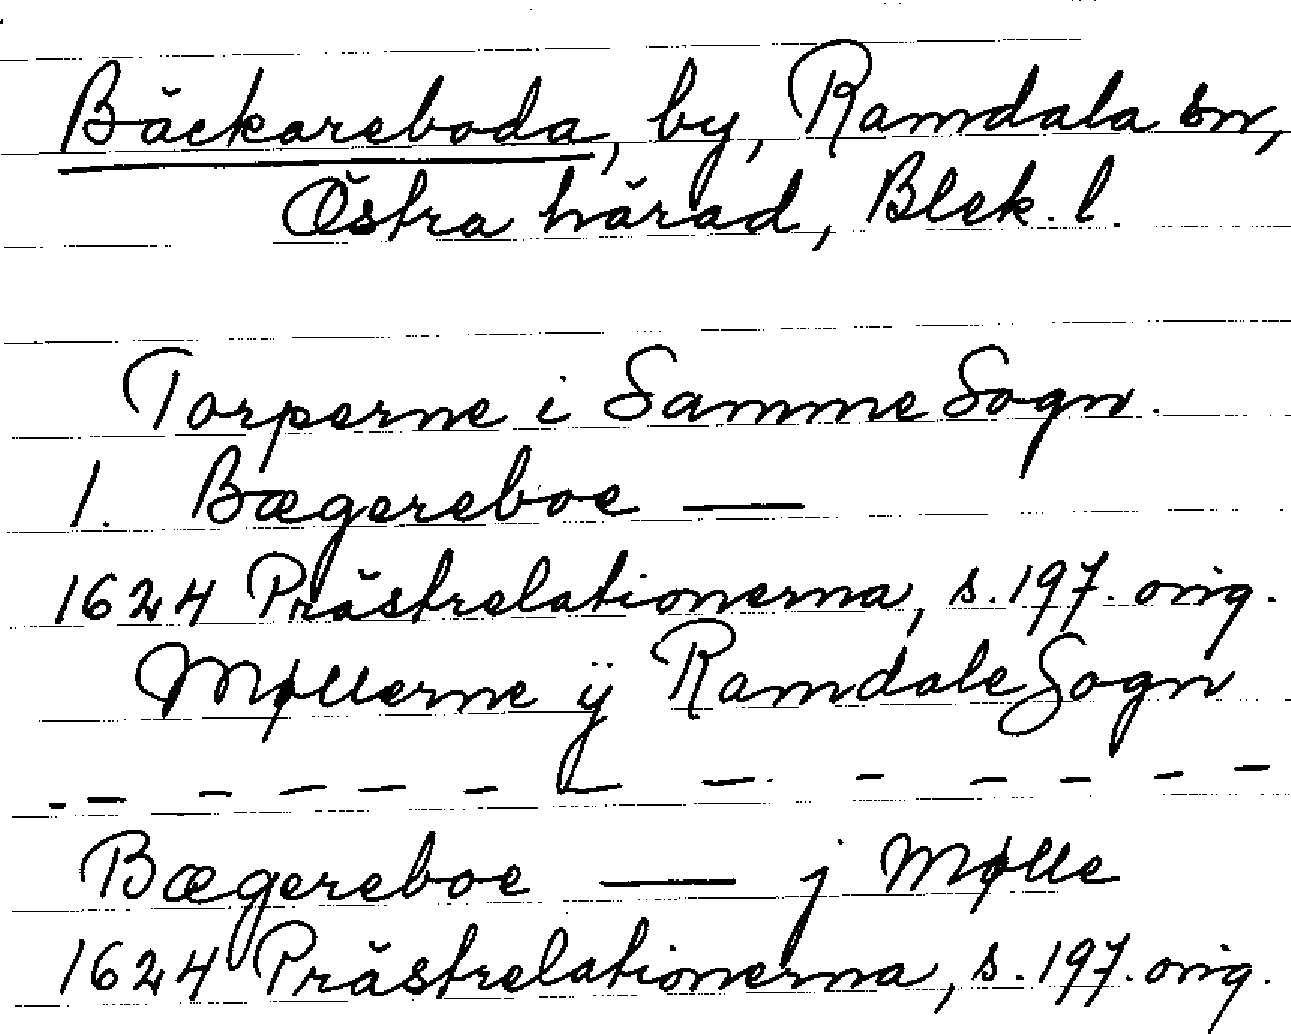 Bäckareboda, by, Ramdala sn,
Östra härad, Blek. l.
Torperne i Samme Sogn.
1. Bægereboe —
1624 Prästrelationerna, s. 197. orig.
Møllerne ÿ Ramdale Sogn
— — — — — — — — — — — —
Bægereboe — j Mølle
1624 Prästrelationerna, s. 197. orig.